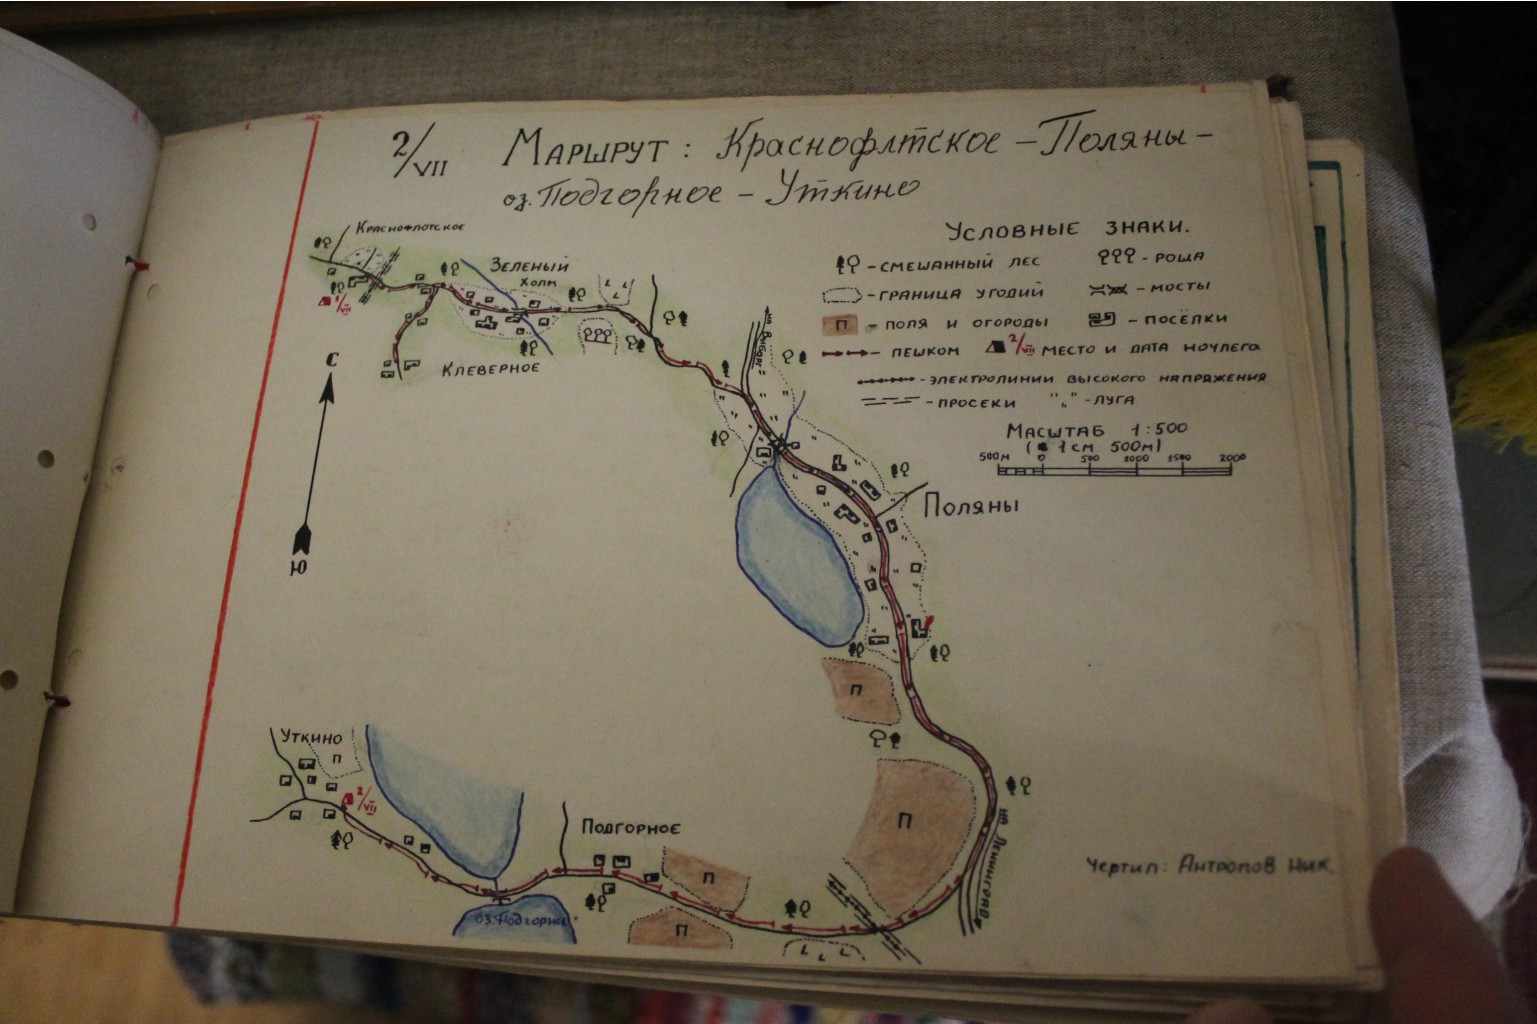 2/VII Маршрут: Краснофлтское – Поляны –
оз. Подгорное – Уткино
Краснофлотское
1/VII
Зеленый
холм
Клеверное
С
Ю
на Выборг
Условные знаки.
– смешанный лес
– роща
– граница угодий
– мосты
П – поля и огороды
– посёлки
– пешком
2/VII место и дата ночлега
– электролинии высокого напряжения
– просеки
– луга
Масштаб 1:500
(в 1 см 500м)
500м 0 500 1000 1500 2000
Поляны
П
П
на Ленинград
Уткино
П
2/VII
Подгорное
П
П
оз. Подгорное
Чертил: Антропов Ник.